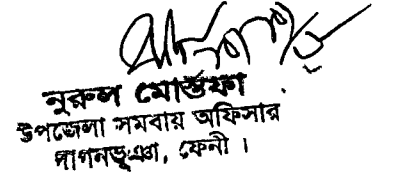 নুরুল মোর্ত্তফা
উপজেলা সমবায় অফিসার
দাগনভূঞা, ফেনী ।